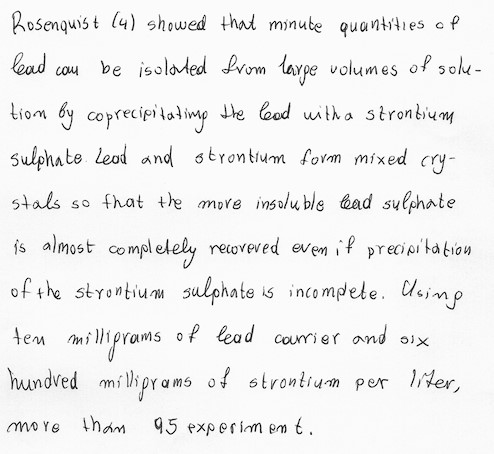 Rosenquist (4) showed that minute quantities of
lead can be isolated from large volumes of solu-
tion by coprecipitating the lead with a strontium
sulphate. Lead and strontium form mixed cry-
stals so that the more insoluble lead sulphate
is almost completely recovered even if precipitation
of the strontium sulphate is incomplete. Using
ten milligrams of lead courrier and six
hundred milligrams of strontium per liter,
more than 95 experiment.